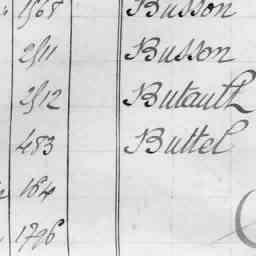 1568 Busson
2511 Busson
2512 Butault
483 Buttel
164
1796